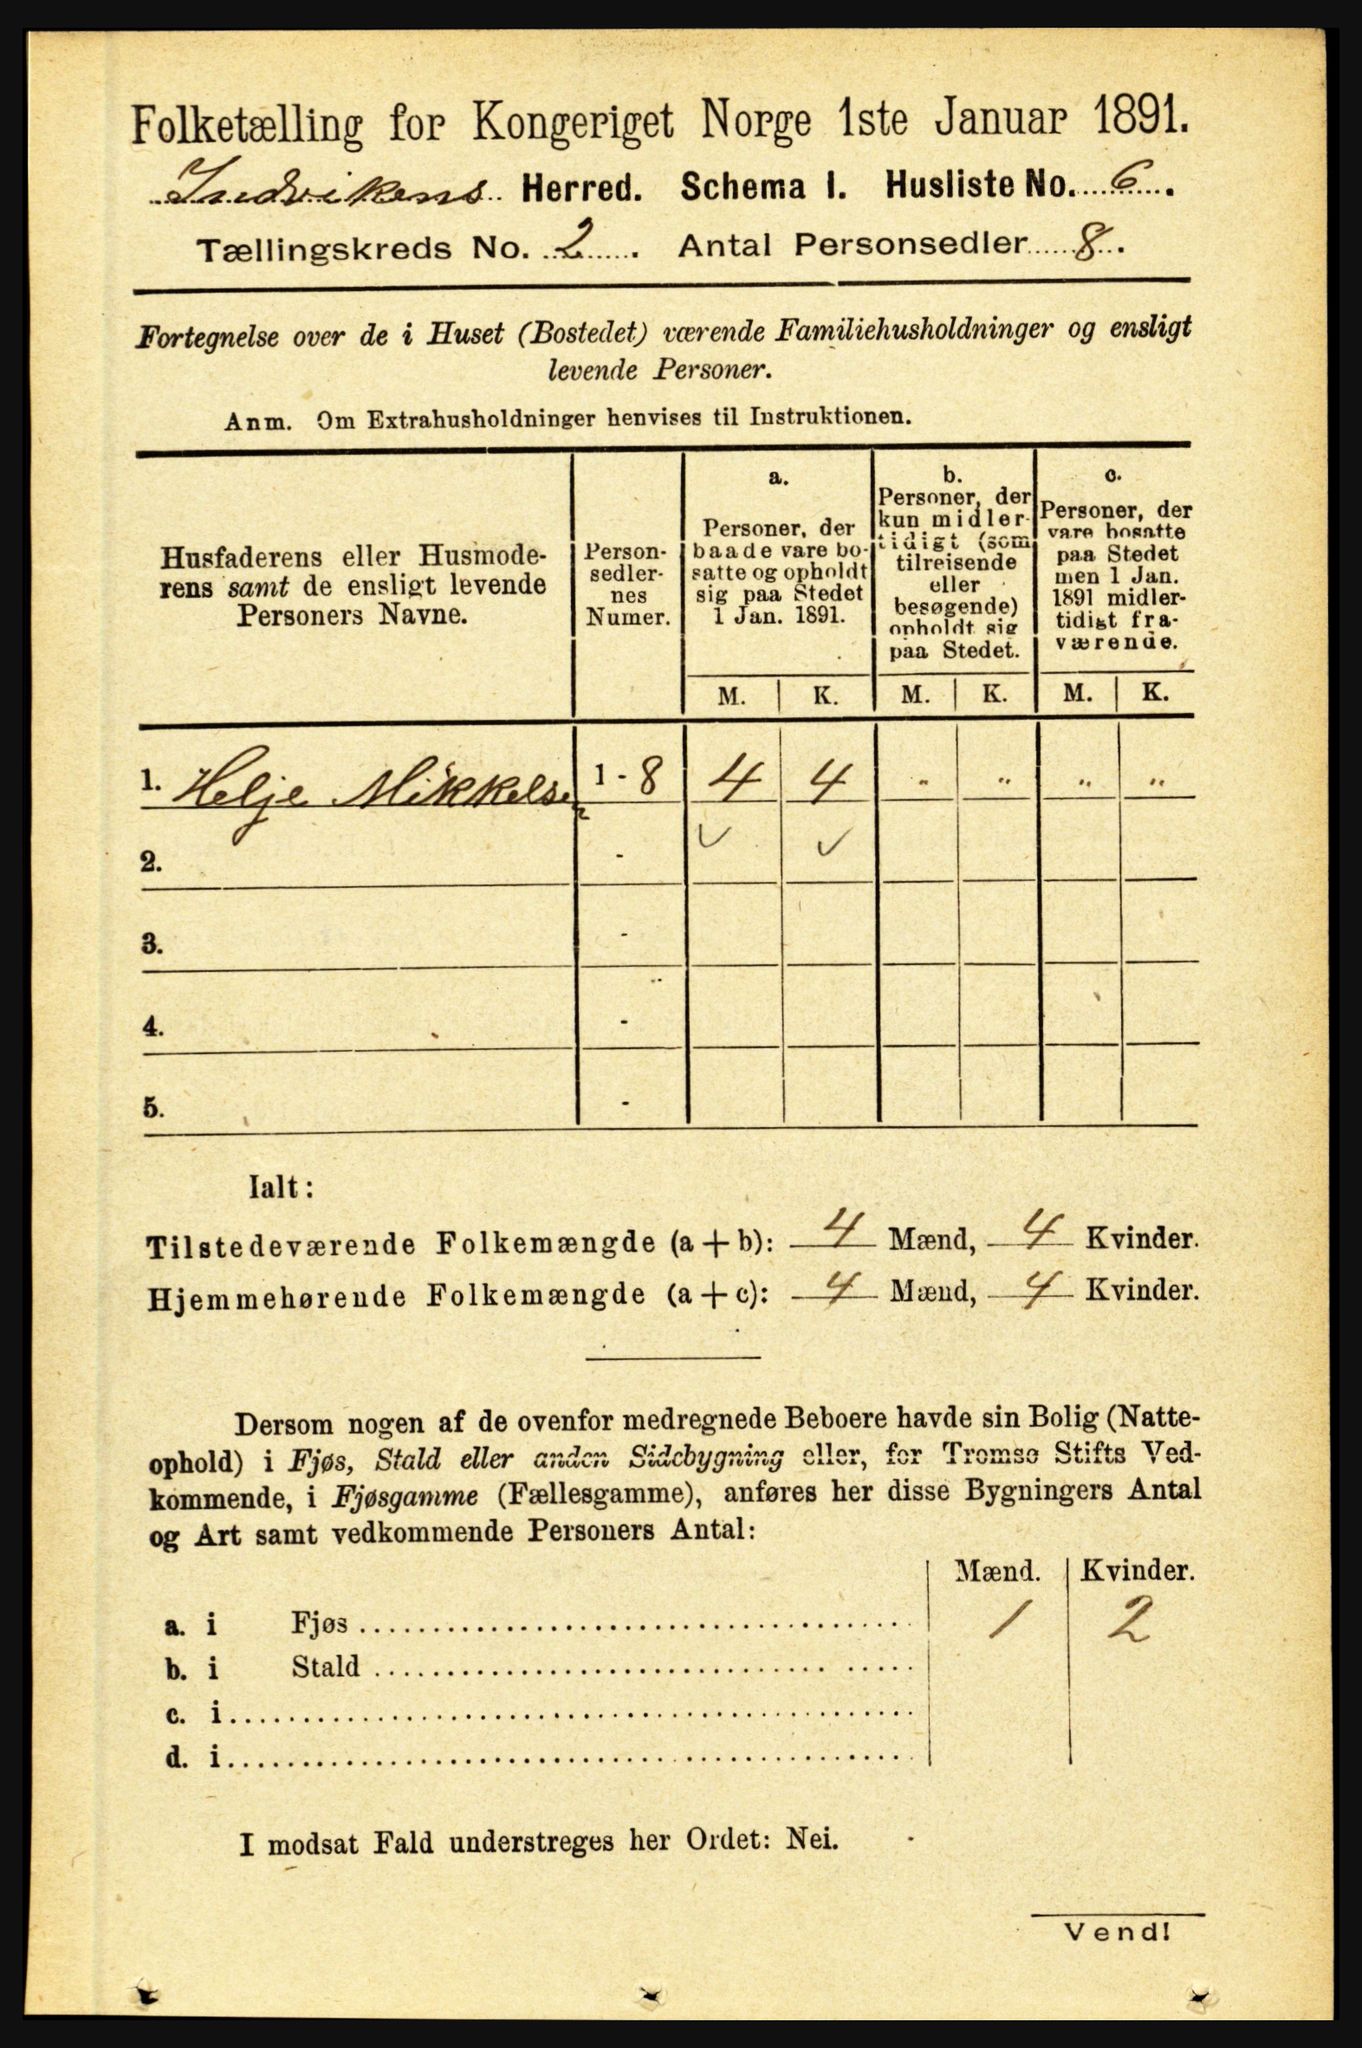 Folketælling for Kongeriget Norge 1ste Januar 1891.
Indvikens Herred. Schema I. Husliste No. 6.
Tællingskreds No. 2. Antal Personsedler 8.
Fortegnelse over de i Huset (Bostedet) værende Familiehusholdninger og ensligt
levende Personer.
Anm. Om Extrahusholdninger henvises til Instruktionen.
Husfaderens eller Husmode-
rens samt de ensligt levende
Personers Navne.
Person-
sedler-
nes
Numer.
a.
Personer, der
baade vare bo-
satte og opholdt
sig paa Stedet
1 Jan. 1891.
b.
Personer, der
kun midler-
tidigt (som
tilreisende
eller
besøgende)
opholdt sig
paa Stedet.
c.
Personer, der
vare bosatte
paa Stedet
men 1 Jan.
1891 midler-
tidigt fra-
værende.
M. K. M. K. M. K.
1. Helje Mikkelsen 1 - 8 4 4 " " " "
2. - ✓ ✓
3. -
4. -
5. -
Ialt:
Tilstedeværende Folkemængde (a + b): 4 Mænd, 4 Kvinder.
Hjemmehørende Folkemængde (a + c): 4 Mænd, 4 Kvinder.
Dersom nogen af de ovenfor medregnede Beboere havde sin Bolig (Natte-
ophold) i Fjøs, Stald eller anden Sidebygning eller, for Tromsø Stifts Ved-
kommende, i Fjøsgamme (Fællesgamme), anføres her disse Bygningers Antal
og Art samt vedkommende Personers Antal:
Mænd. Kvinder.
a. i Fjøs 1 2
b. i Stald
c. i
d. i
I modsat Fald understreges her Ordet: Nei.
Vend!